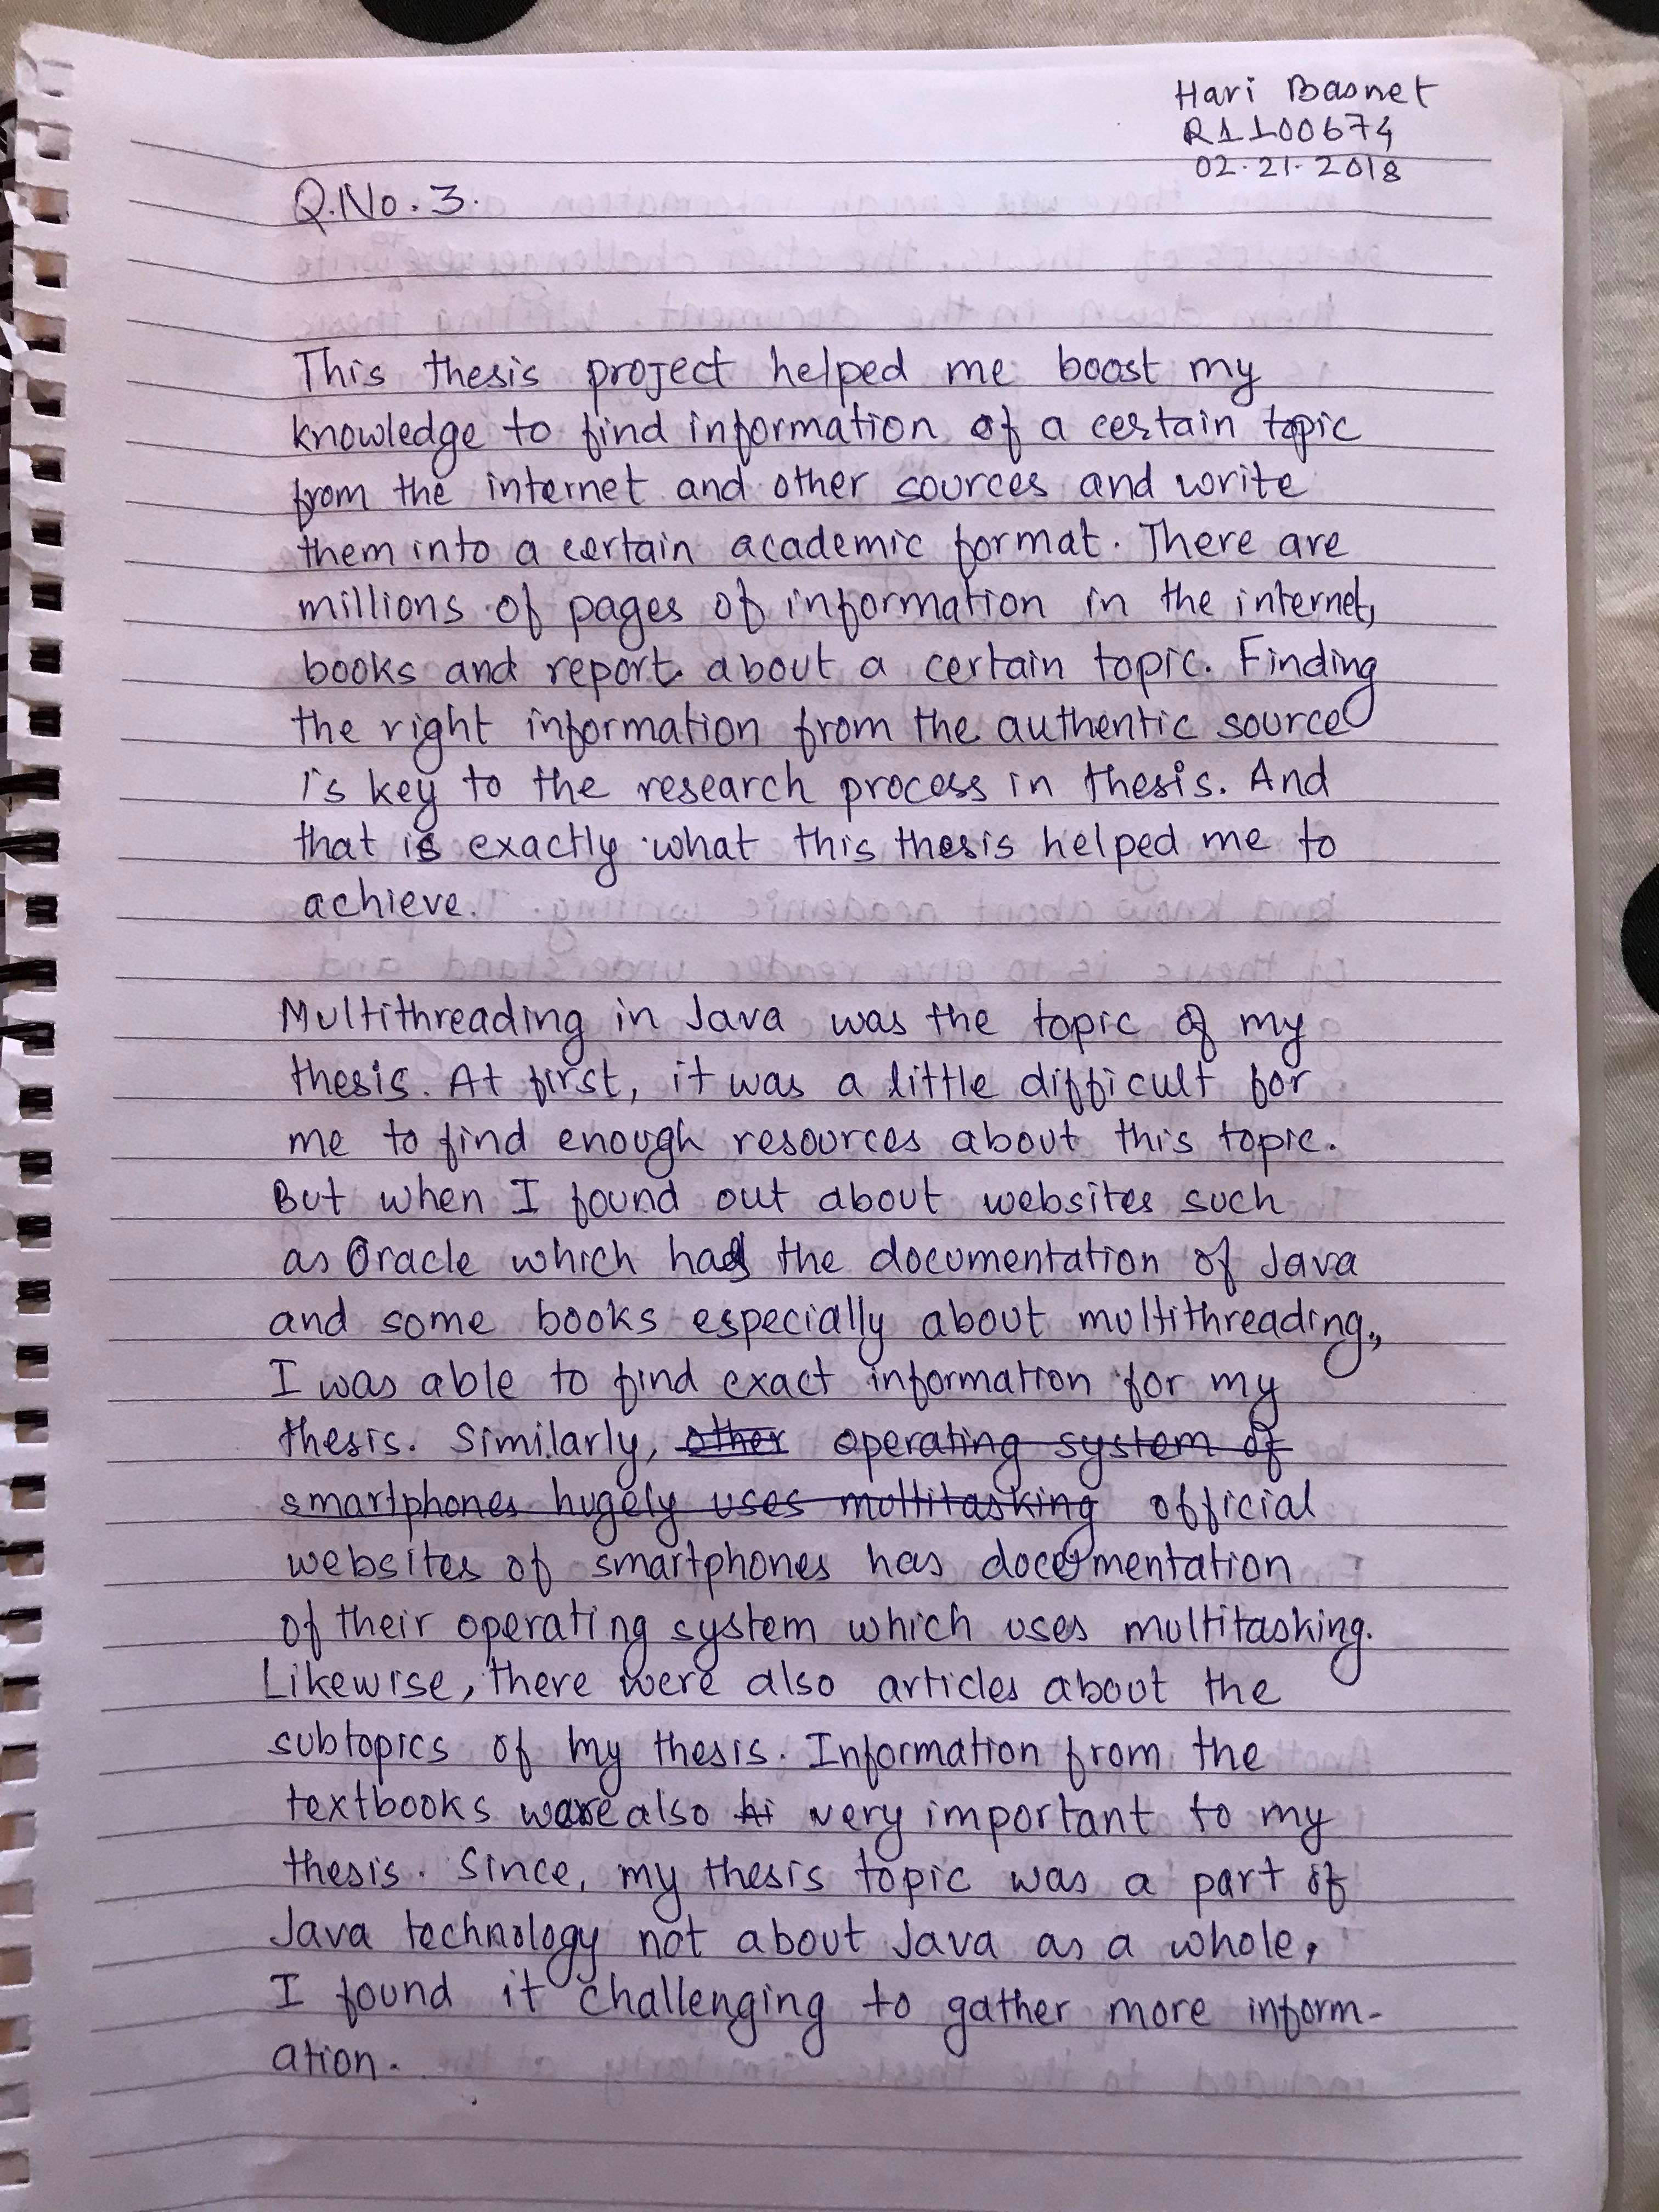 Hari Basnet
R1100674
02.21.2018
Q.No.3.
This thesis project helped me boost my
knowledge to find information of a certain topic
from the internet and other sources and write
them into a certain academic format. There are
millions of pages of information in the internet,
books and report about a certain topic. Finding
the right information from the authentic source
is key to the research process in thesis. And
that is exactly what this thesis helped me to
achieve.
Multithreading in Java was the topic of my
thesis. At first, it was a little difficult for
me to find enough resources about this topic.
But when I found out about websites such
as Oracle which had the documentation of Java
and some books especially about multithreading,
I was able to find exact information for my
thesis. Similarly, other operating system of
smartphones hugely uses multitasking official
websites of smartphones has documentation
of their operating system which uses multitasking.
Likewise, there were also articles about the
subtopics of my thesis. Information from the
textbooks were also very important to my
thesis. Since, my thesis topic was a part of
Java technology not about Java as a whole,
I found it challenging to gather more inform-
ation.